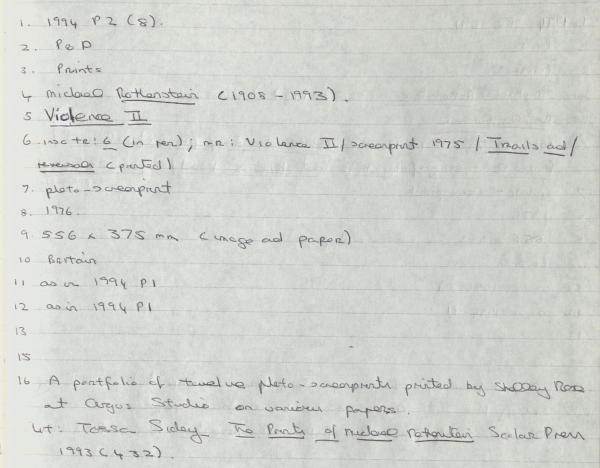 1. 1994 P2 (8).
2. P&D
3. Prints
4 Michael Rothenstein (1908-1993).
5 Violence II
6 insc tr: 6 (in pen); mr: Violence II/screenprint 1975 / Trails ad/
reversals (printed)
7. photo-screenprint
8. 1976.
9. 556 x 375 mm (image ad paper)
10 Britain
11 as in 1994 P1
12 as in 1994 P1
13
15
16 A portfolio of twelve photo-screenprints printed by Shelley Rose
at Argus Studio on various papers.
Lit: Tessa Sidey The Prints of Michael Rothenstein Scolar Press
1993 (432).